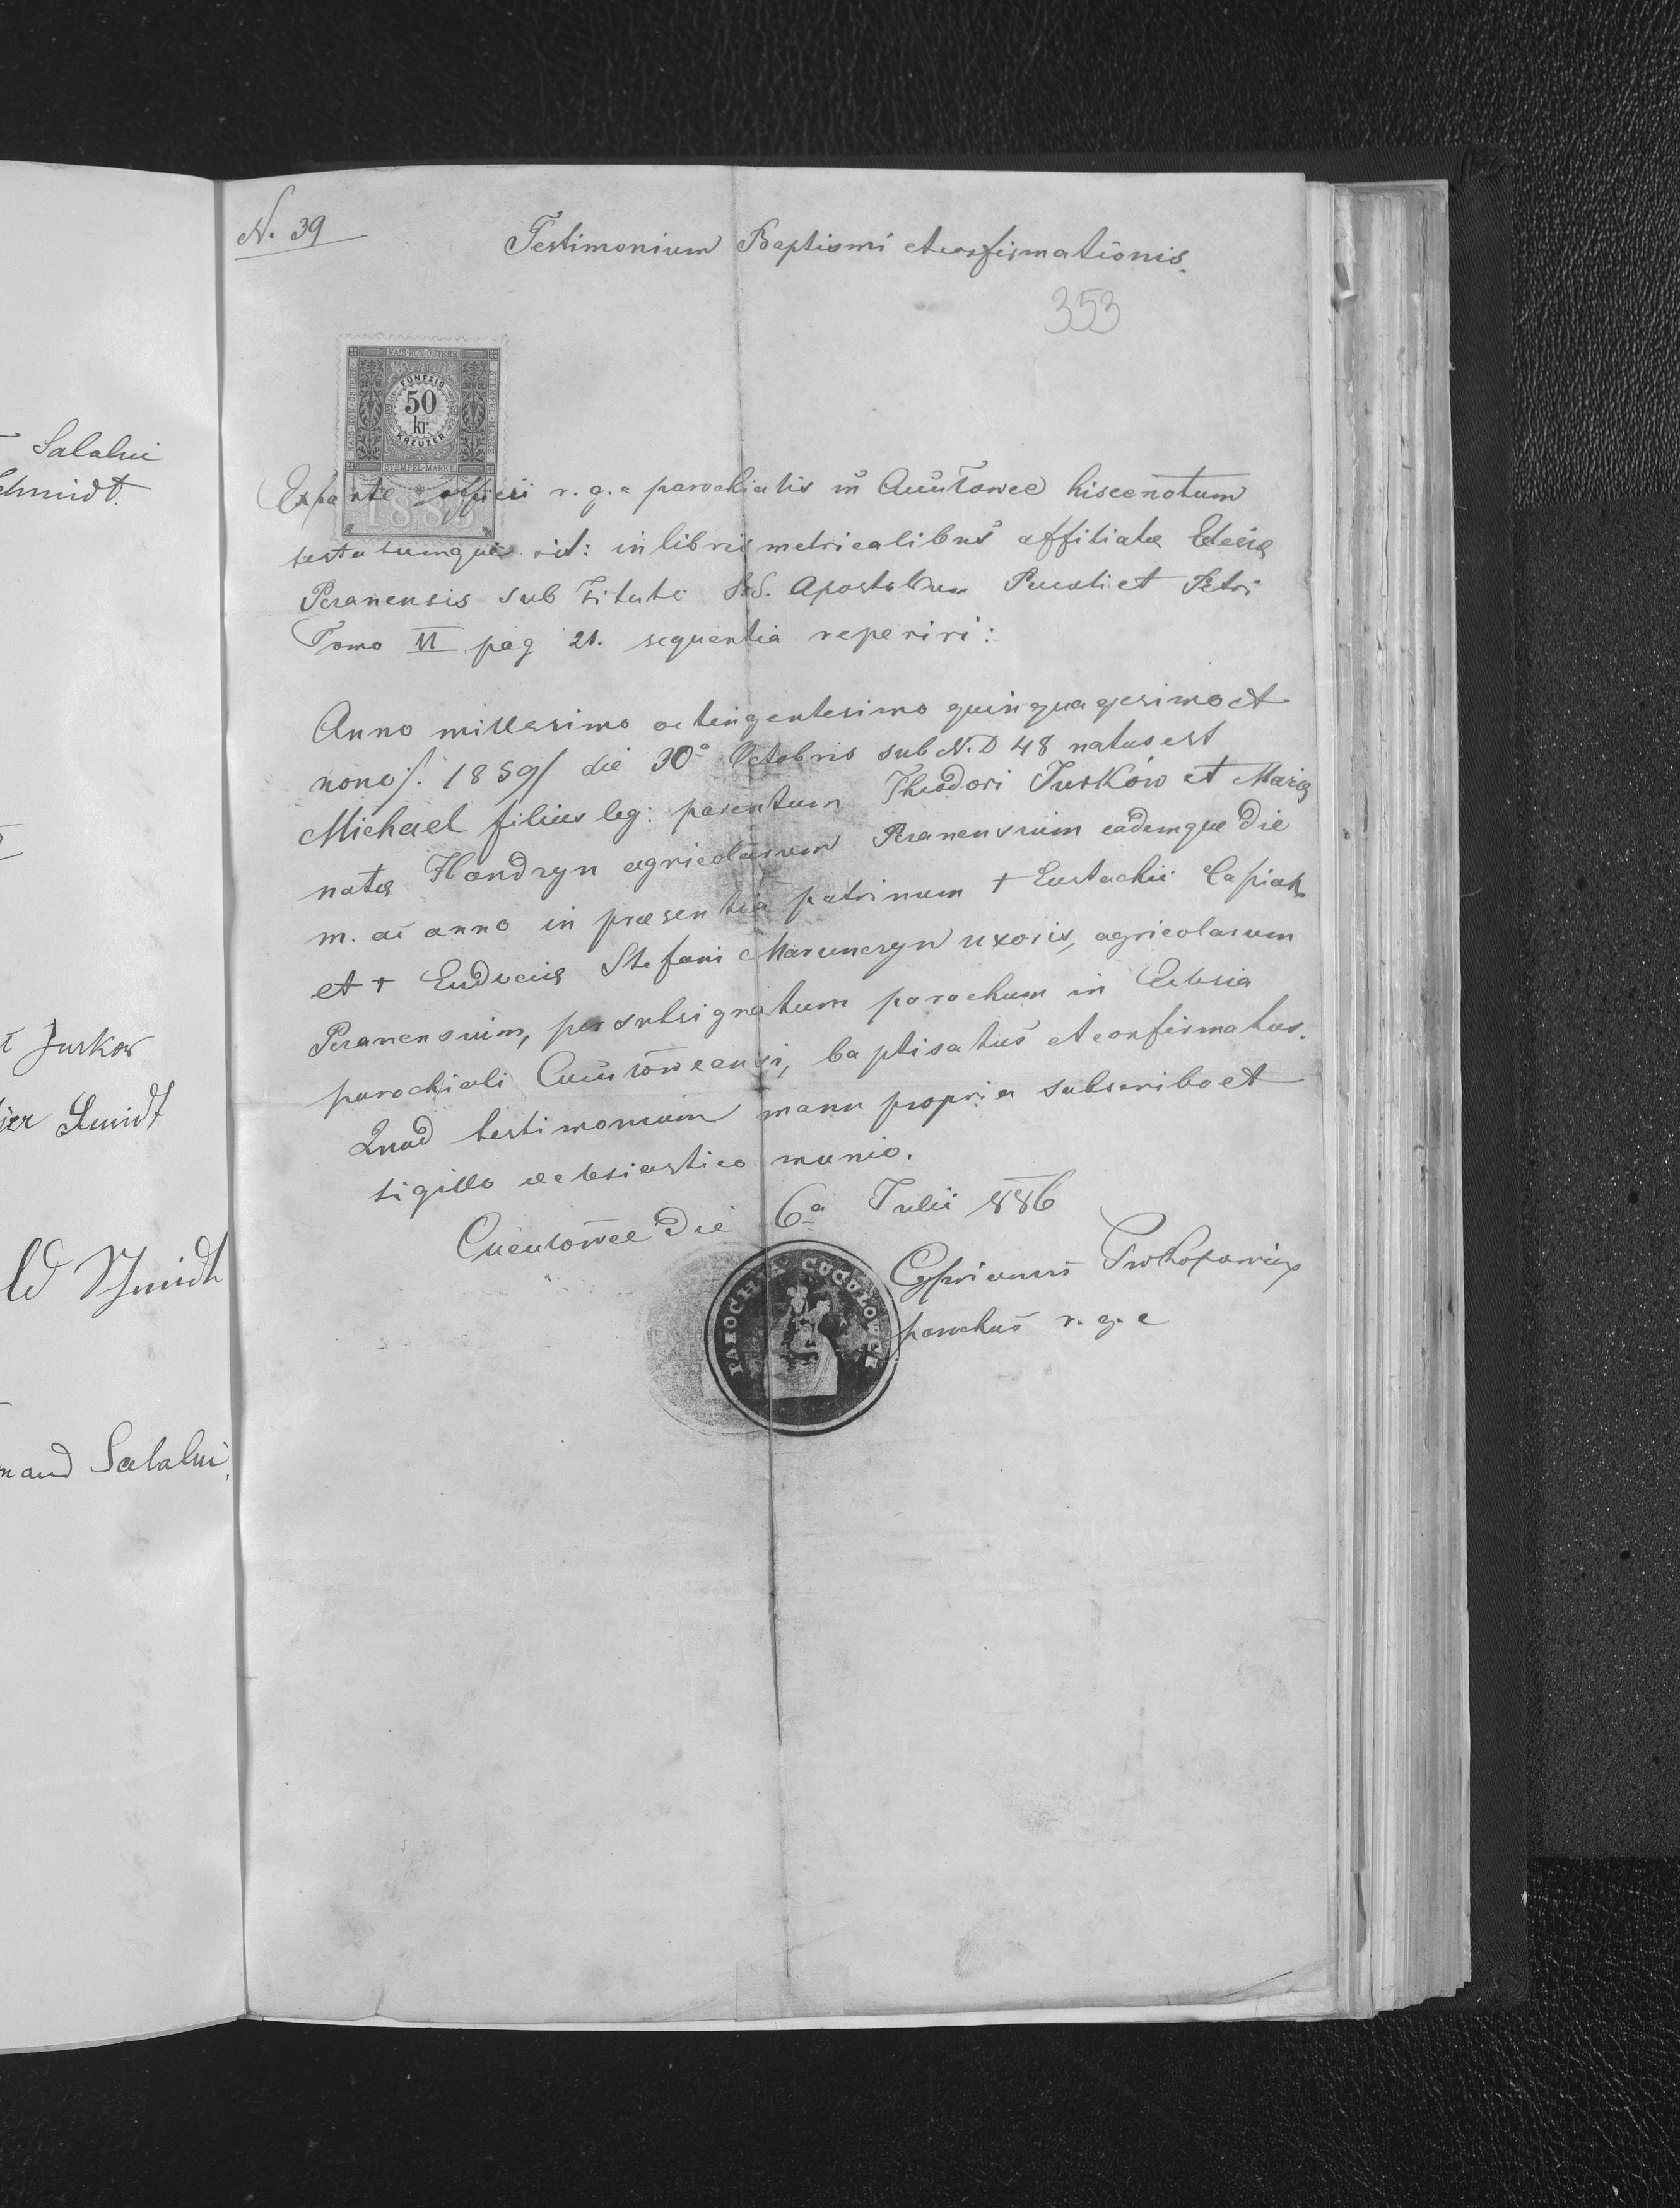 N. 39
Testimonium Baptismi et confirmationis.
353
KAIS. KÖN. ÖSTERR.
STEMPEL-MARKE
FÜNFZIG
50
kr.
KREUZER
STEMPEL-MARKE
188
Ex parte officii r. g. c parochialis in Cucułowce hisce notum
testatumque sit: in libris metricalibus affiliatæ Eclæ
Peranensis sub titulo S.S. Apostolum Pauli et Petri
Tomo VI pag 21. sequentia reperiri:
Anno millesimo octingentesimo quinquagesimo et
nono /. 1859/ die 30a Octobris sub N. D 48 natus est
Michael filius leg: parentum Theodori Jurków et Mariæ
natæ Handzyn agricolarum Peranensium eademque die
m. ac anno in præsentia patrinum + Eustachii Capiak
et + Eudociæ Stefani uxoris, agricolarum
Peranensium, per subsignatum parochum in Eclesia
parochiali Cucułowcensi, baptisatus et confirmatus.
Quod testimonium manu propria subscribo et
sigillo eclesiastico munio.
Cucułowce die 6a Julii 886
Cyprianus Prokopowicz
parochus r. g. c
PAROCHIA CUCUŁOWCE
Salalui
chmidt.
Jurkow
jer Smidt
ld Schmidt
mand Salalui